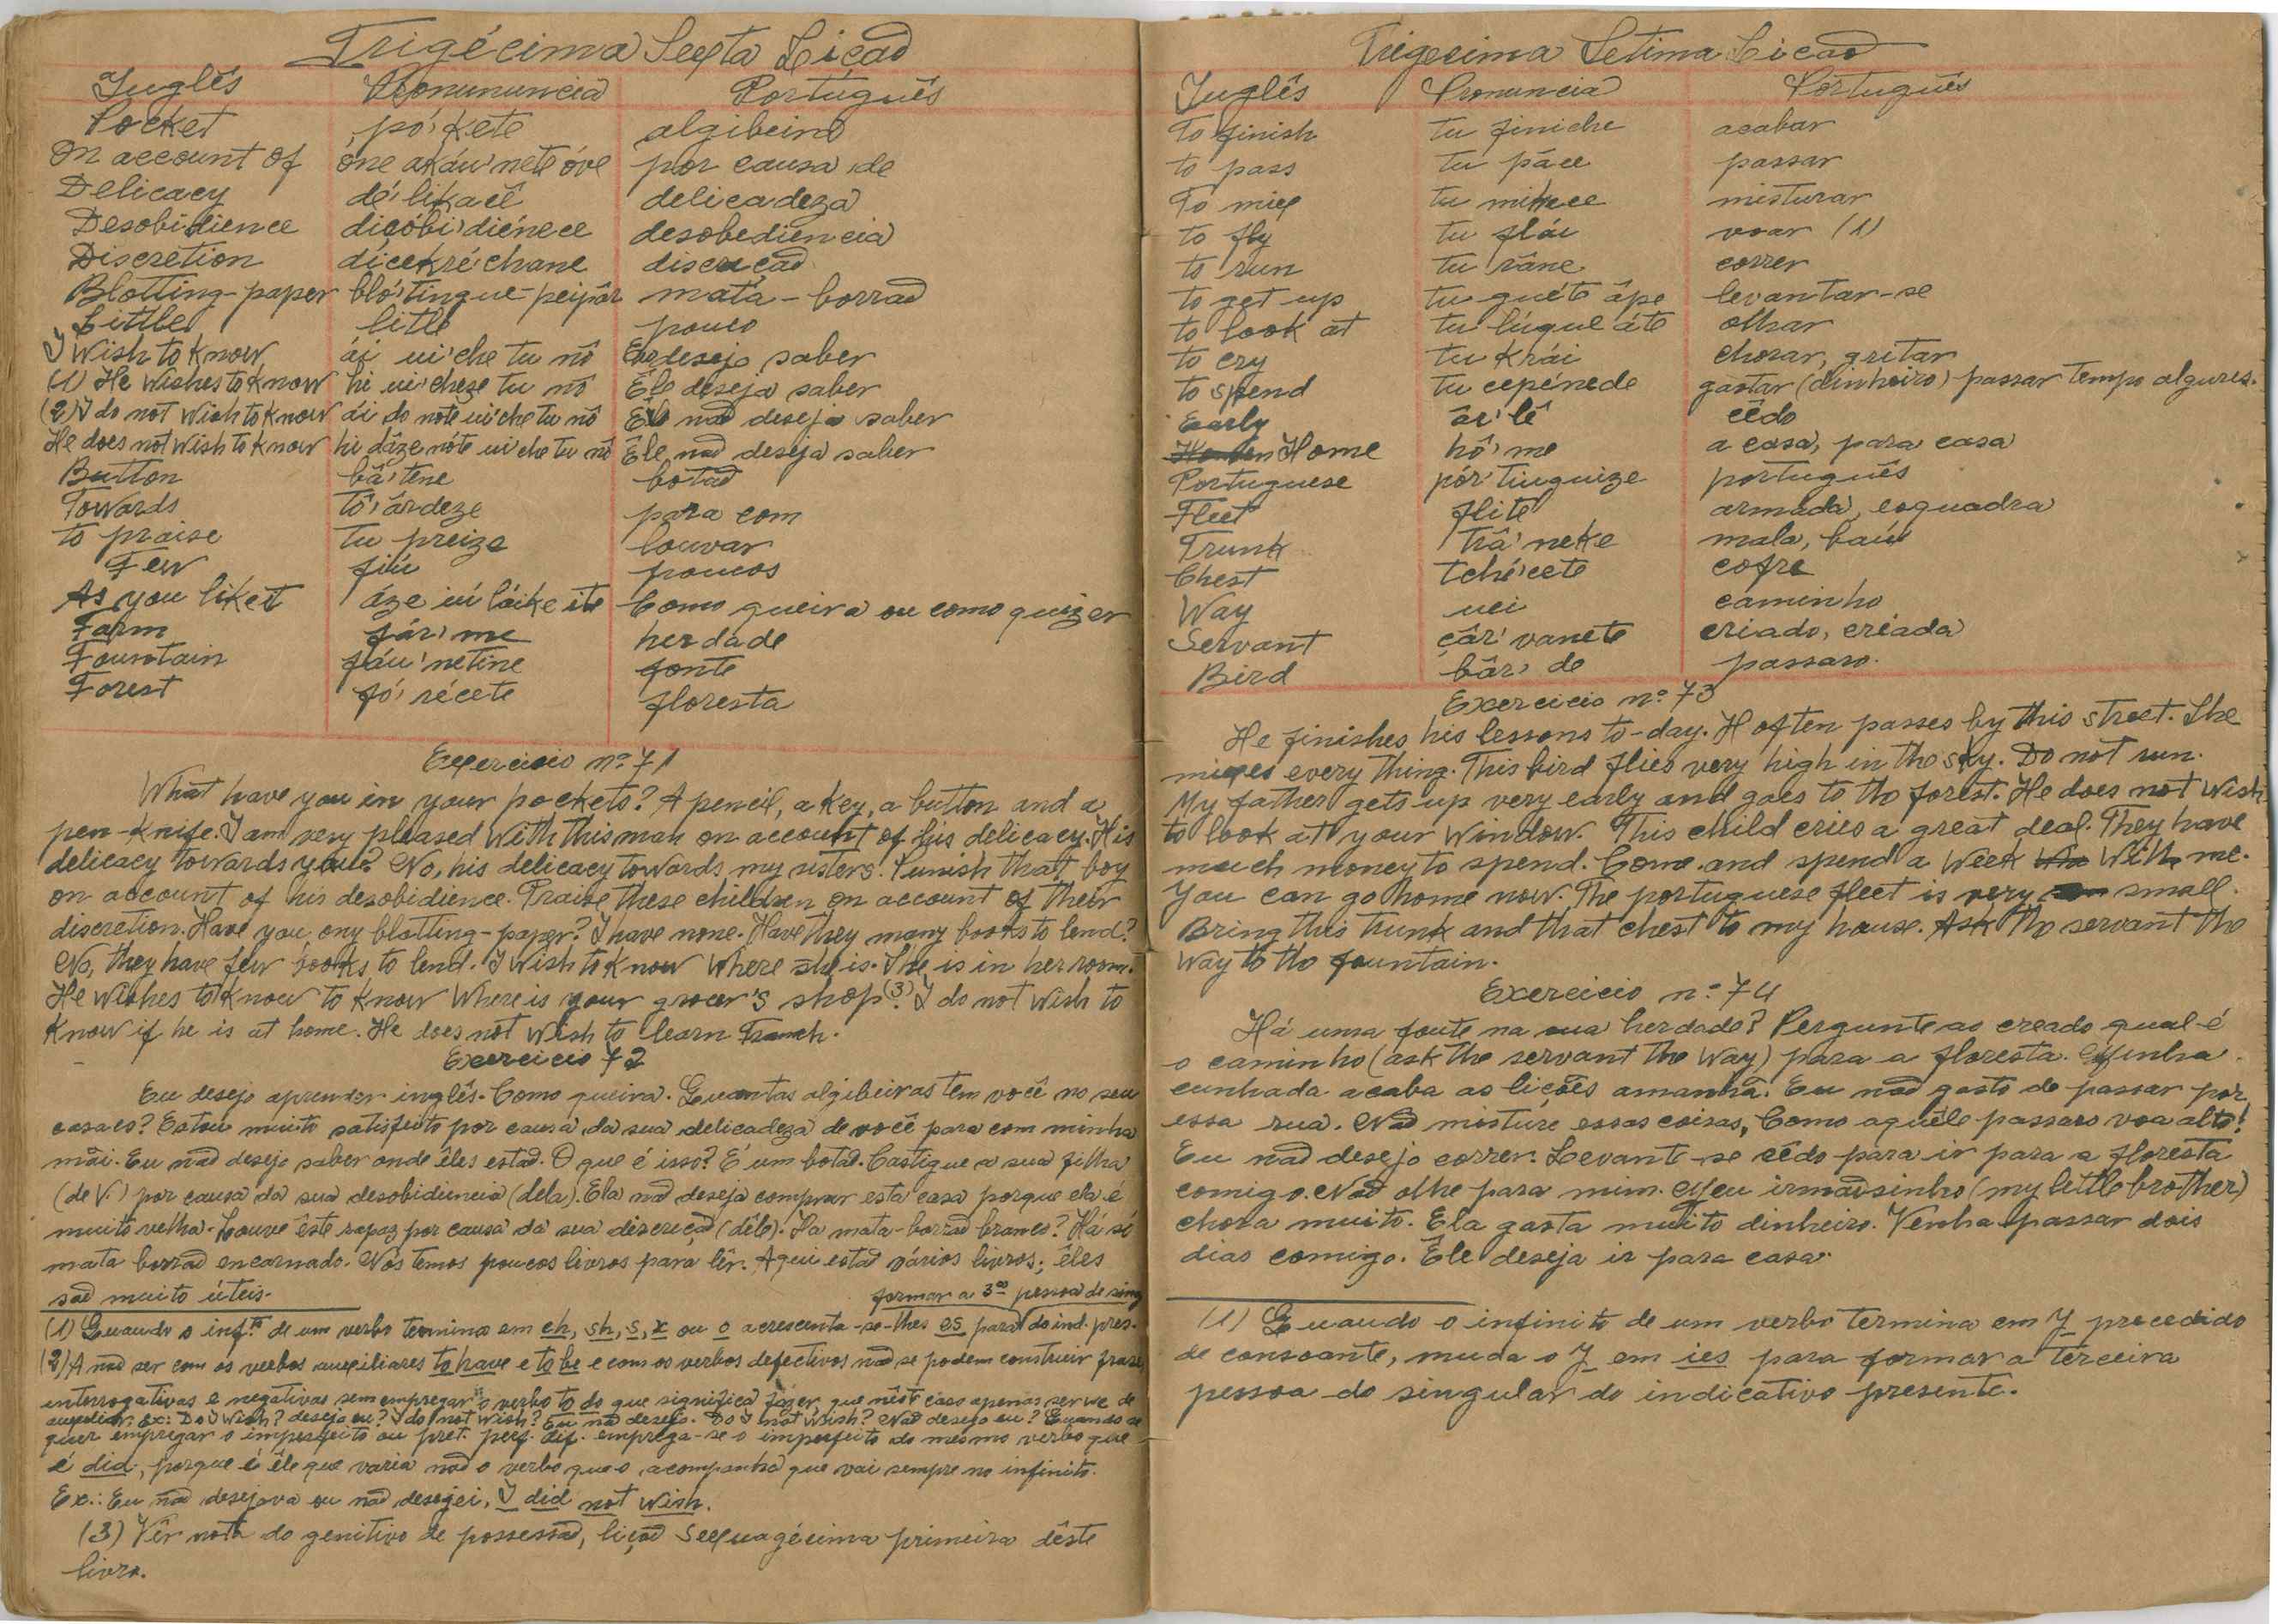 Trigécima Sexta Liçaõ
Inglês Pronununcia Português
Pocket pó'kete algibeira
On account of óne akáu'nete óve por causa de
Delicacy dé'likacê delicadeza
Desobidience diçóbi'diénece desobediencia
Discretion dícekré'chane discreçaõ
Blotting-paper bló'tingue-peipâr mata-borraõ
Little litle pouco
I wish to know ái ui'che tu nô Eu desejo saber
(1) He wishes to know hi ui'cheze tu nô Êle deseja saber
(2) I do not wish to know ái do nóte ui'che tu nô Eu naõ desejo saber
He does not wish to know hi dâze nóte ui'che tu nô Êle naõ deseja saber
Button bâ'tene botaõ
Towards tô'ârdeze para com
to praise tu preize louvar
Few fiú poucos
As you like it áze iú láike ite Como queira ou como quizer
Farm fár'me herdade
Fountain fáu'netine fonte
Forest fó'récete floresta
Exercicio nº 71
What have you in your pockets? A pencil, a key, a button and a
pen-knife. I am very pleased with this man on account of his delicacy. His
delicacy towards you? No, his delicacy towards my sisters. Punish that boy
on account of his desobidience. Praise these children on account of their
discretion. Have you any blotting-paper? I have none. Have they many books to lend?
No, they have few books to lend. I wish to know where she is. She is in her room.
He wishes to know to know where is your grocer's shop(3). I do not wish to
know if he is at home. He does not wish to learn French.
Exercicio 72
Eu desejo aprender inglês. Como queira. Quantas algibeiras tem você no seu
casaco? Estou muito satisfeito por causa da sua delicadeza de você para com minha
mãi. Eu naõ desejo saber onde êles estaõ. O que é isso? É um botaõ. Castigue a sua filha
(de V.) por causa da sua desobidiencia (dela). Ela naõ deseja comprar esta casa porque ela é
muito velha. Louve êste rapaz por causa da sua discreçaõ (dêle). Ha mata-borraõ branco? Há só
mata borraõ encarnado. Nós temos poucos livros para lêr. Aqui estaõ vários livros; êles
saõ muito úteis.
formar a 3ª pessoa do sing
(1) Quando o infto de um verbo termina em ch, sh, s, x ou o acrescenta-se-lhes es para do ind. pres.
(2) A naõ ser com os verbos auxiliares to have e to be e com os verbos defectivos naõ se podem construir frases
interrogativas e negativas sem empregar o verbo to do que significa fazer, que nêste caso apenas serve de
auxiliar. Ex: Do I wish? desejo eu? I do not wish? Eu naõ desejo. Do I not wish? Naõ desejo eu? Quando se
quer empregar o imperfeito ou pret. perf. dif. emprega-se o imperfeito do mesmo verbo que
é did, porque é êle que varia naõ o verbo que o acompanha que vai sempre no infinito.
Ex.: Eu naõ desejava ou naõ desejei, I did not wish.
(3) Vêr nota do genitivo de possessaõ, liçaõ Sexuagécima primeira dêste
livro.
Trigesima Setima Licaõ
Inglês Pronuncia Português
To finish tu finiche acabar
to pass tu páce passar
To mix tu mikece misturar
to fly tu flái voar (1)
to run tu râne correr
to get up tu guéte âpe levantar-se
to look at tu lúque áte olhar
to cry tu krái chorar, gritar
to spend tu cepénede gastar (dinheiro) passar tempo algures.
Early âr'lê cêdo
Home hô'me a casa, para casa
Portuguese pór'tinguize português
Fleet flite armada, esquadra
Trunk trâ'neke mala, baú
Chest tché'cete cofre
Way uei caminho
Servant çâr'vanete criado, criada
Bird bâr'de passaro.
Exercicio nº 73
He finishes his lessons to-day. H often passes by this street. She
mixes every thing. This bird flies very high in the sky. Do not run.
My father gets up very early and goes to the forest. He does not wish
to look at your window. This child cries a great deal. They have
much money to spend. Come and spend a week with me.
You can go home now. The portuguese fleet is very small.
Bring this trunk and that chest to my house. Ask the servant the
way to the fountain.
Exercicio nº 74
Há uma fonte na sua herdade? Pergunte ao creado qual é
o caminho (ask the servant the way) para a floresta. Minha
cunhada acaba as lições amanhã. Eu naõ gosto de passar por
essa rua. Naõ misture essas coisas, Como aquêle passaro voa alto!
Eu naõ desejo correr. Levante-se cêdo para ir para a floresta
comigo. Naõ olhe para mim. Meu irmaõsinho (my little brother)
chora muito. Ela gasta muito dinheiro. Venha passar dois
dias comigo. Êle deseja ir para casa.
(1) Quando o infinito de um verbo termina em y precedido
de consoante, muda o y em ies para formar a terceira
pessoa do singular do indicativo presente.